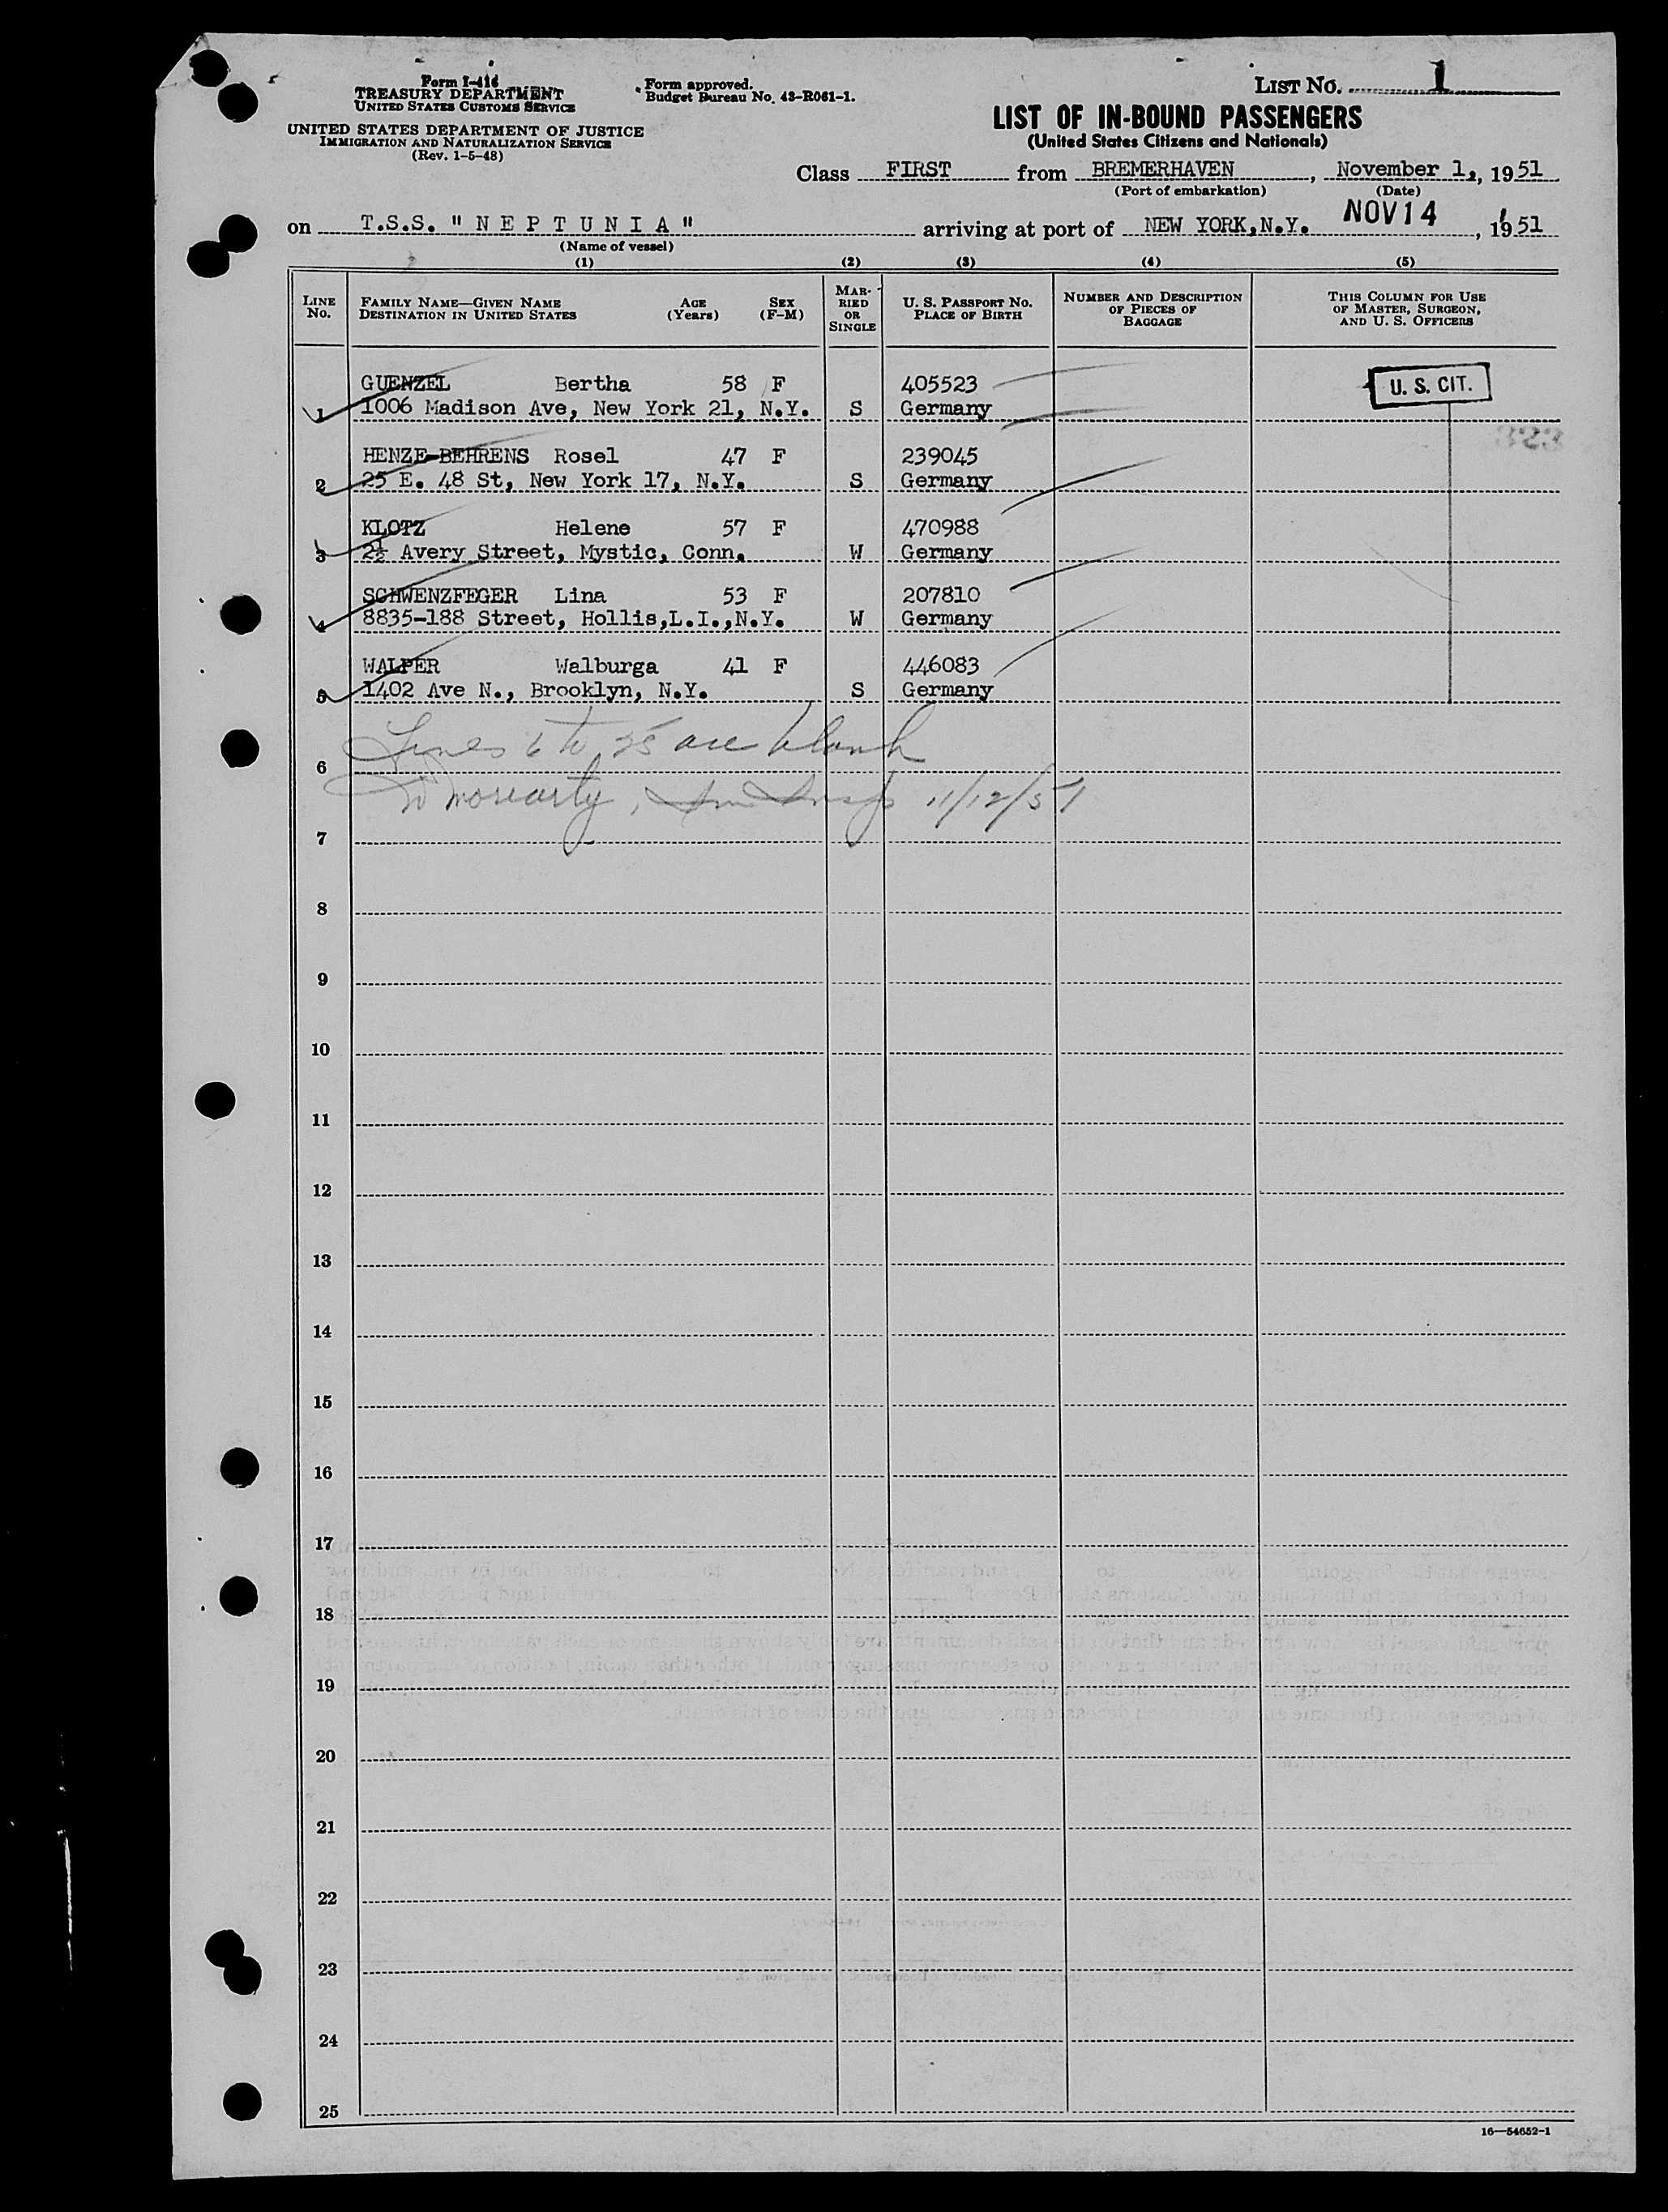 Form I-416
TREASURY DEPARTMENT
UNITED STATES CUSTOMS SERVICE
UNITED STATES DEPARTMENT OF JUSTICE
IMMIGRATION AND NATURALIZATION SERVICE
(Rev. 1-5-48)
Form approved.
Budget Bureau No. 43-R061-1.
LIST NO. 1
LIST OF IN-BOUND PASSENGERS
(United States Citizens and Nationals)
Class FIRST from BREMERHAVEN, November 1, 1951
(Port of embarkation) (Date)
on T.S.S. "NEPTUNIA" arriving at port of NEW YORK, N.Y. NOV 14, 1951
(Name of vessel)
(1) (2) (3) (4) (5)
LINE NO. FAMILY NAME—GIVEN NAME DESTINATION IN UNITED STATES AGE (Years) SEX (F-M) MARRIED OR SINGLE U. S. PASSPORT NO. PLACE OF BIRTH NUMBER AND DESCRIPTION OF PIECES OF BAGGAGE THIS COLUMN FOR USE OF MASTER, SURGEON, AND U. S. OFFICERS
GUENZEL Bertha 58 F 405523 U. S. CIT.
1 1006 Madison Ave, New York 21, N.Y. S Germany
HENZE-BEHRENS Rosel 47 F 239045
2 25 E. 48 St, New York 17, N.Y. S Germany
KLOTZ Helene 57 F 470988
3 2½ Avery Street, Mystic, Conn. W Germany
SCHWENZFEGER Lina 53 F 207810
4 8835-188 Street, Hollis,L.I.,N.Y. W Germany
WALPER Walburga 41 F 446083
5 1402 Ave N., Brooklyn, N.Y. S Germany
Lines 6 to 25 are blank
6
Moriarty, Imm Insp 11/12/51
7
8
9
10
11
12
13
14
15
16
17
18
19
20
21
22
23
24
25
16—54652-1